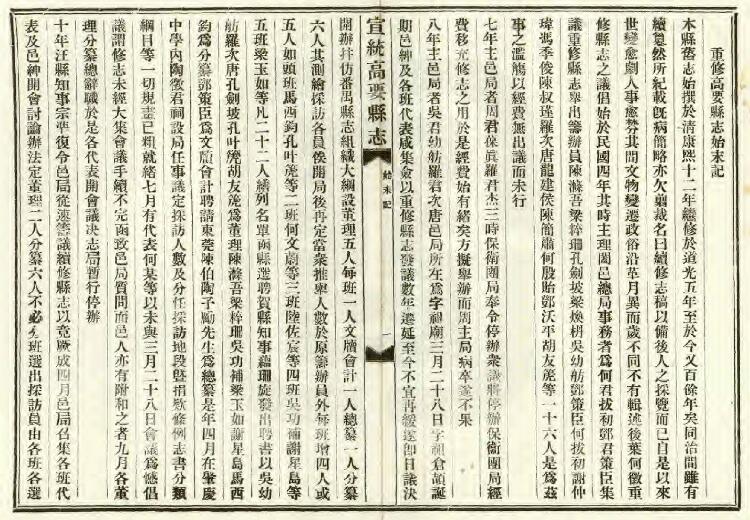 重修高要縣志始末記
本縣舊志始撰於清康熙十二年繼修於道光五年至於今又百餘年矣同治間雖有
續葺然所紀載旣病簡略亦欠翦裁名曰續修志稿以備後人之採覽而已自是以來
世變愈劇人事愈繁其間文物變遷政俗沿革月異而歲不同不有輯述後葉何徵重
修縣志之議倡始於民國四年其時主理闔邑總局事務者爲何君拔初鄧君策臣集
議重修縣志舉出籌辦員陳滌吾梁粹珊孔劍坡梁煥枬吳幼舫鄧策臣何拔初謝仲
瑋馮季俊陳叔瑾羅次唐龍建侯陳簡肅何殷貽鄧沃平胡友篪等一十六人是爲茲
事之濫觴以經費無出議而未行
七年主邑局者周君保眞羅君杰三時保衛團局奉令停辦衆議將停辦保衛團局經
費移充修志之用於是經費始有緒矣方擬舉辦而周主局病卒遂不果
八年主邑局者吳君幼舫羅君次唐邑局所在爲字祖廟三月二十八日字祖倉頡誕
期邑紳及各班代表咸集僉以重修縣志發議數年遷延至今不宜再緩遂卽日議決
宣統高要縣志
始末記
一
開辦并仿番禺縣志組織大綱設董理五人每班一人文牘會計一人總纂一人分纂
六人其測繪採訪各員俟開局後再定當衆推舉人數於原籌辦員外每班增四人或
五人如頭班馬西鈞孔叶篪等二班何文蔚等三班陸佐宸等四班吳功補謝星島等
五班梁玉如等凡二十二人續列名單函縣選聘賀縣知事蘊珊旋發出聘書以吳幼
舫羅次唐孔劍坡孔叶篪胡友篪爲董理陳滌吾梁粹珊吳功補梁玉如謝星島馬西
鈞爲分纂鄧策臣爲文牘會計聘請東莞陳伯陶子勵先生爲總纂是年四月在肇慶
中學內陶徵君祠設局任事議定採訪人數及分任採訪地段曁捐欵條例志書分類
綱目等一切規畫已粗就緒七月有代表何某等以未與三月二十八日會議爲憾倡
議謂修志未經大集會議手續不完函致邑局質問而邑人亦有附和之者九月各董
理分纂總辭職於是各代表開會議決志局暫行停辦
十年汪縣知事宗準復令邑局從速籌議續修縣志以竟厥成四月邑局召集各班代
表及邑紳開會討論辦法定董理二人分纂六人不必分班選出採訪員由各班各選